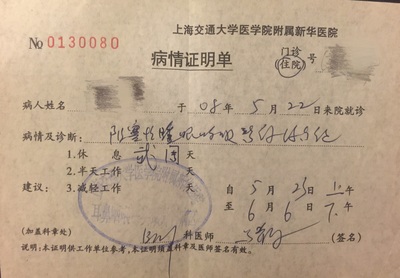 上海交通大学医学院附属新华医院
No 0130080
病情证明单
门诊
住院 号
病人姓名 于 08 年 5 月 22 日来院就诊
病情及诊断： 阻塞性睡眠呼吸暂停综合征
1.休 息 贰周 天
2.半天工作 天
建议：3.减轻工作 天
自 5 月 23 日 上 午
至 6 月 6 日 下 午
(加盖科章处) 科医师 (签名)
说明：本证明供工作单位参考，本证明须盖科章及医师签名有效。